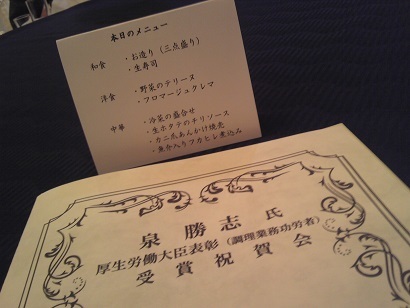 本日のメニュー
和食 ・お造り(三点盛り)
・生寿司
洋食 ・野菜のテリーヌ
・フロマージュクレマ
中華 ・冷菜の盛合せ
・生ホタテのチリソース
・カニ爪あんかけ焼売
・魚介入りフカヒレ煮込み
泉 勝志 氏
厚生労働大臣表彰(調理業務功労者)
受賞祝賀会